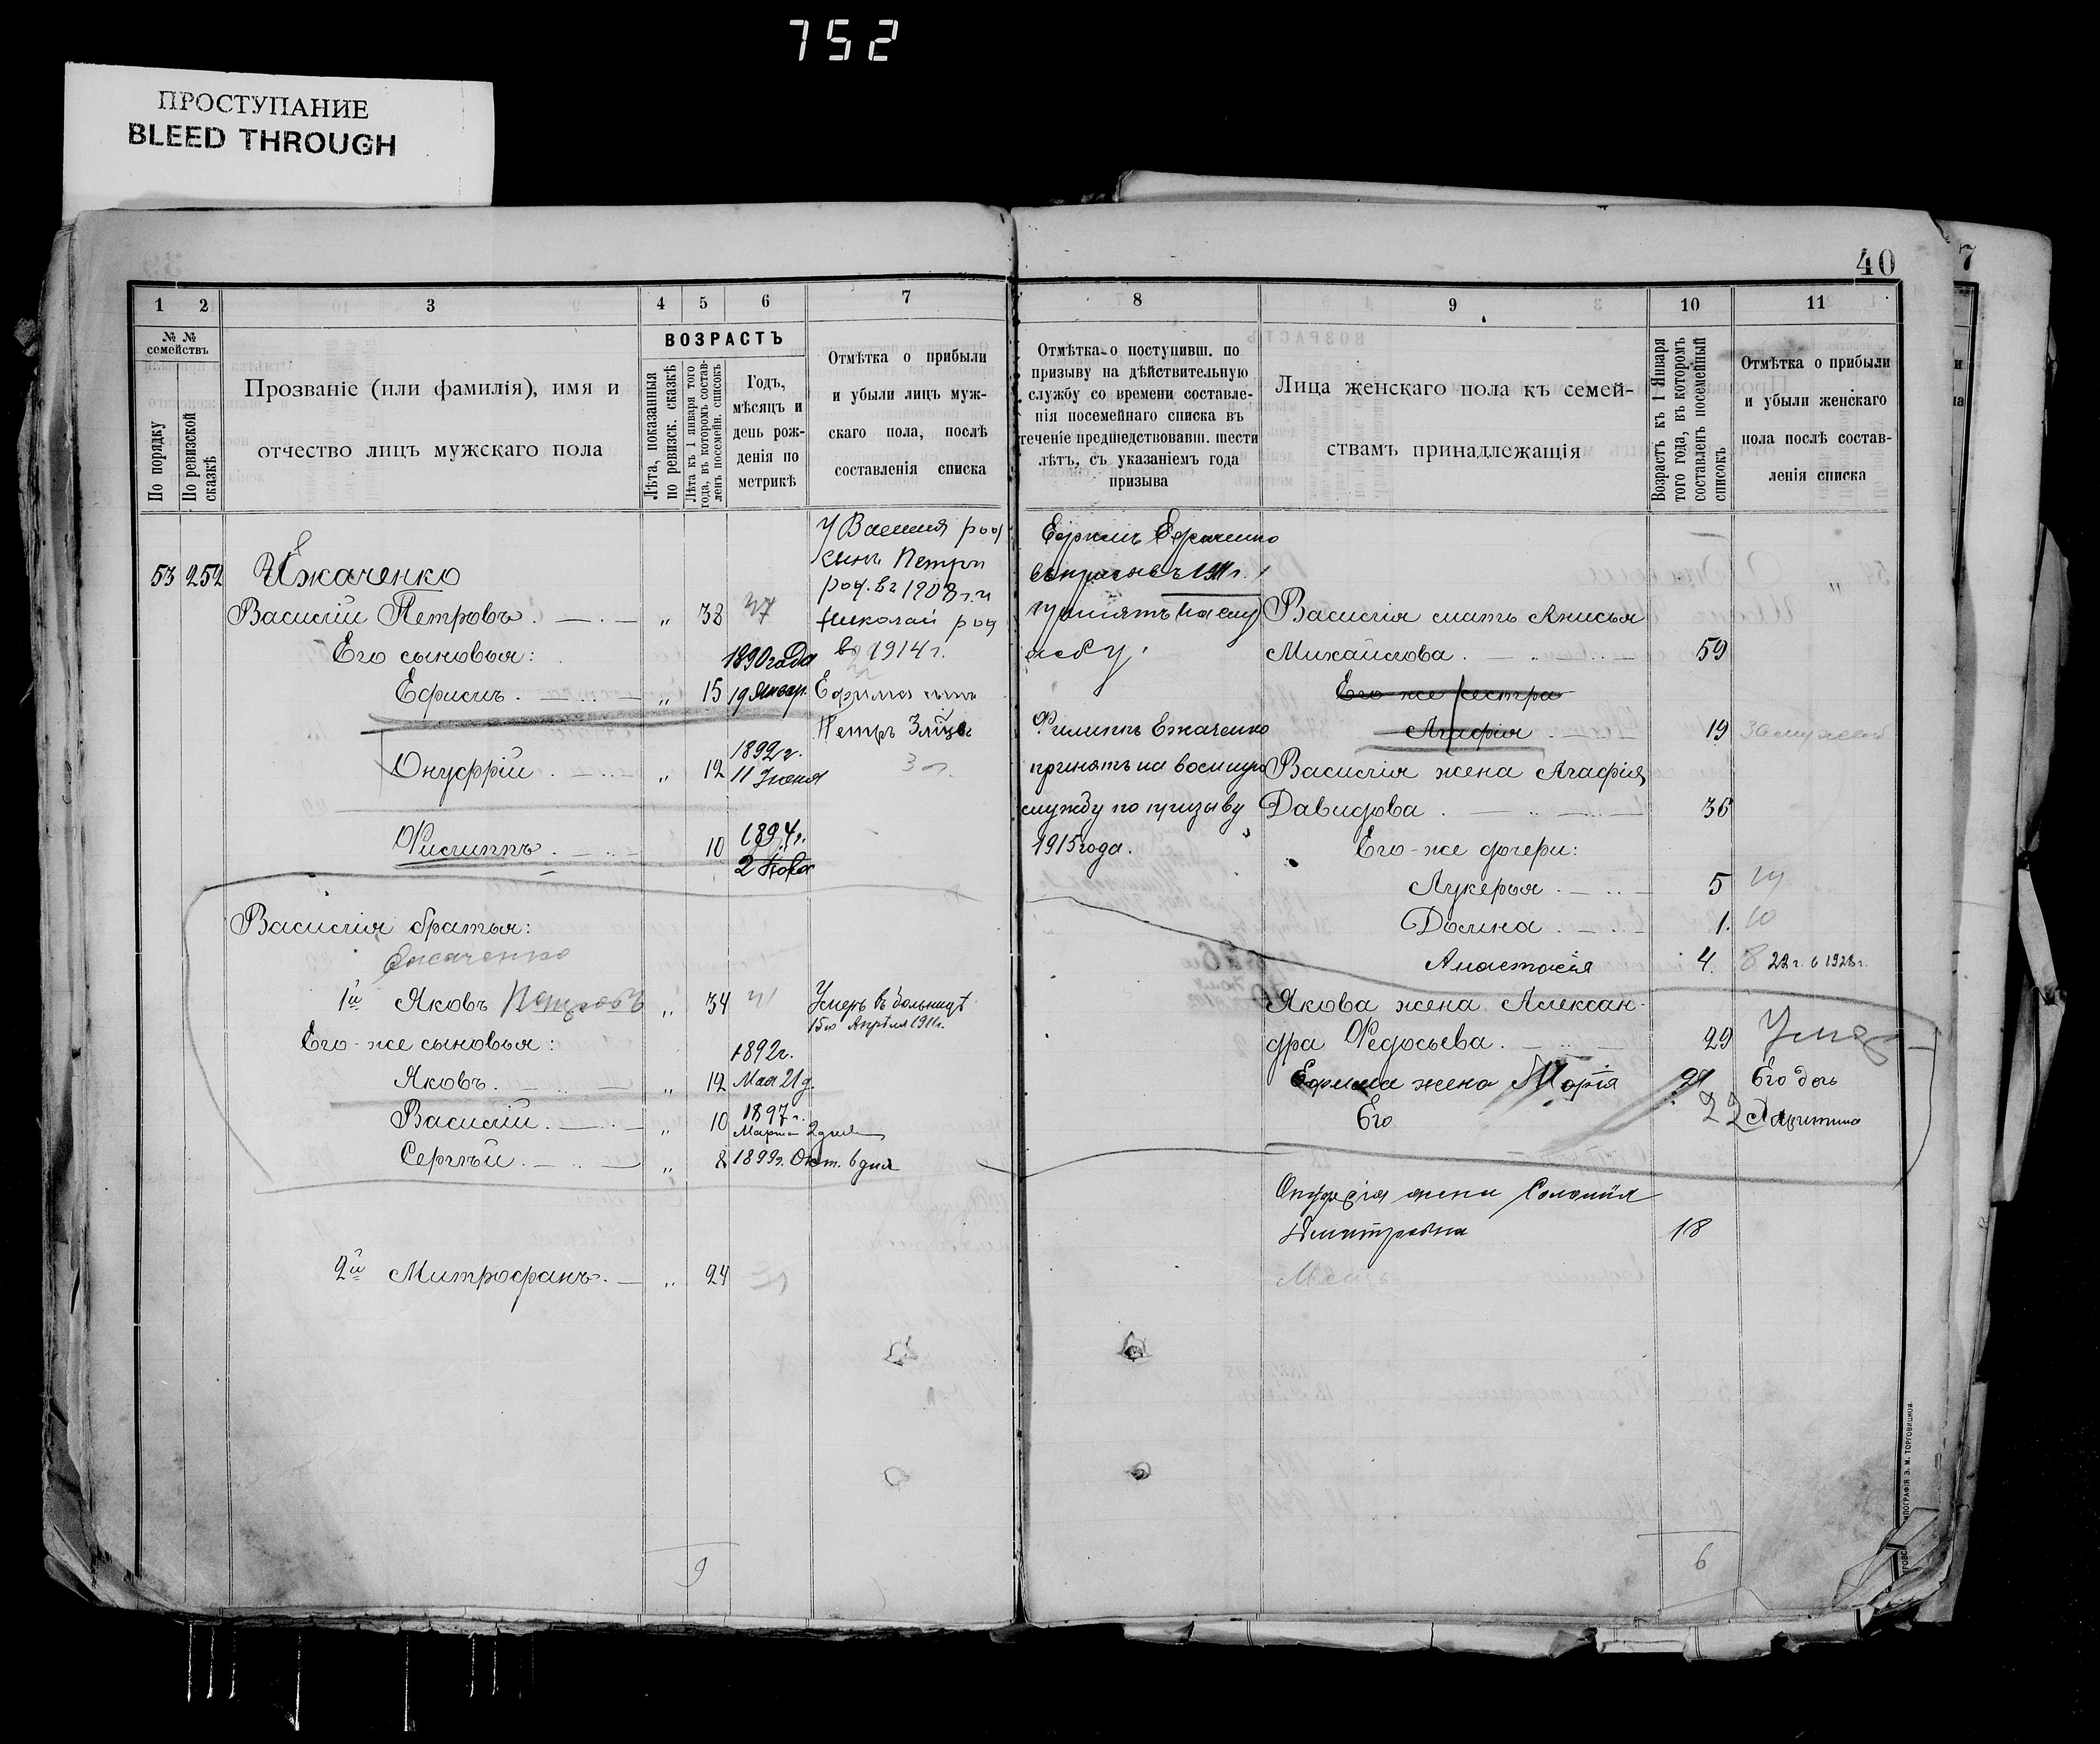 752
ПРОСТУПАНИЕ
BLEED THROUGH
40
7
1 2 3 4 5 6 7
№ № семействъ
По порядку
По ревизской сказкѣ
Прозваніе (или фамилія), имя и
отчество лицъ мужскаго пола
ВОЗРАСТЪ
Лѣта, показанныя по ревизск. сказкѣ
Лѣта къ 1 января того года, въ которомъ составленъ посемейн. списокъ
Годъ,
мѣсяцъ и
день рож-
денія по
метрикѣ
Отмѣтка о прибыли
и убыли лицъ муж-
скаго пола, послѣ
составленія списка
53 252
Василій Петровъ 38 37
Его сыновья:
Ефимъ 15
1890 года
19 Январ.
Онуфрій 12
1892 г.
11 Іюня
Филиппъ 10
1894 г.
Василія братья:
1й Яковъ Петровъ 34
Его-же сыновья:
Яковъ 12
1892 г.
Мая 21 д.
Василій 10
1897 г.
Марта 2 дня
Сергѣй 8 1899 г. Окт. 6 дня
2й Митрофанъ 24
9
У Василія род
сынъ Петръ
род. въ 1908 г. и
Николай род
въ 1914 г.
Ефима сынъ
Петръ
Умеръ въ больницѣ
15го Апрѣля 1911 г.
8 9 10 11
Отмѣтка о поступивш. по
призыву на дѣйствительную
службу со времени составле-
нія посемейнаго списка въ
теченіе предшедствовавш. шести
лѣтъ, съ указаніемъ года
призыва
Лица женскаго пола къ семей-
ствамъ принадлежащія
Возрастъ къ 1 Января того года, въ которомъ составленъ посемейный списокъ
Отмѣтка о прибыли
и убыли женскаго
пола послѣ состав-
ленія списка
Ефимъ
въ призывъ 1911 г.
принятъ на слу
жбу
Филиппъ Ежаченко
принятъ на военную
службу по призыву
1915 года.
Василія мать Анисья
Михайлова 59
Его же сестра
Агафія 19 Замужемъ
Василія жена Агафія
Давидова 36
Его-же дочери:
Лукерья 5 14
Домна 1 10
Анастасія 4 8 22 г. в 1928 г.
Якова жена Алексан-
дра Федосьева 29
Ефима жена Марія 21 Его дочь
Его 22 Харитина
Онуфрія жена Соломія
Дмитровна 18
6